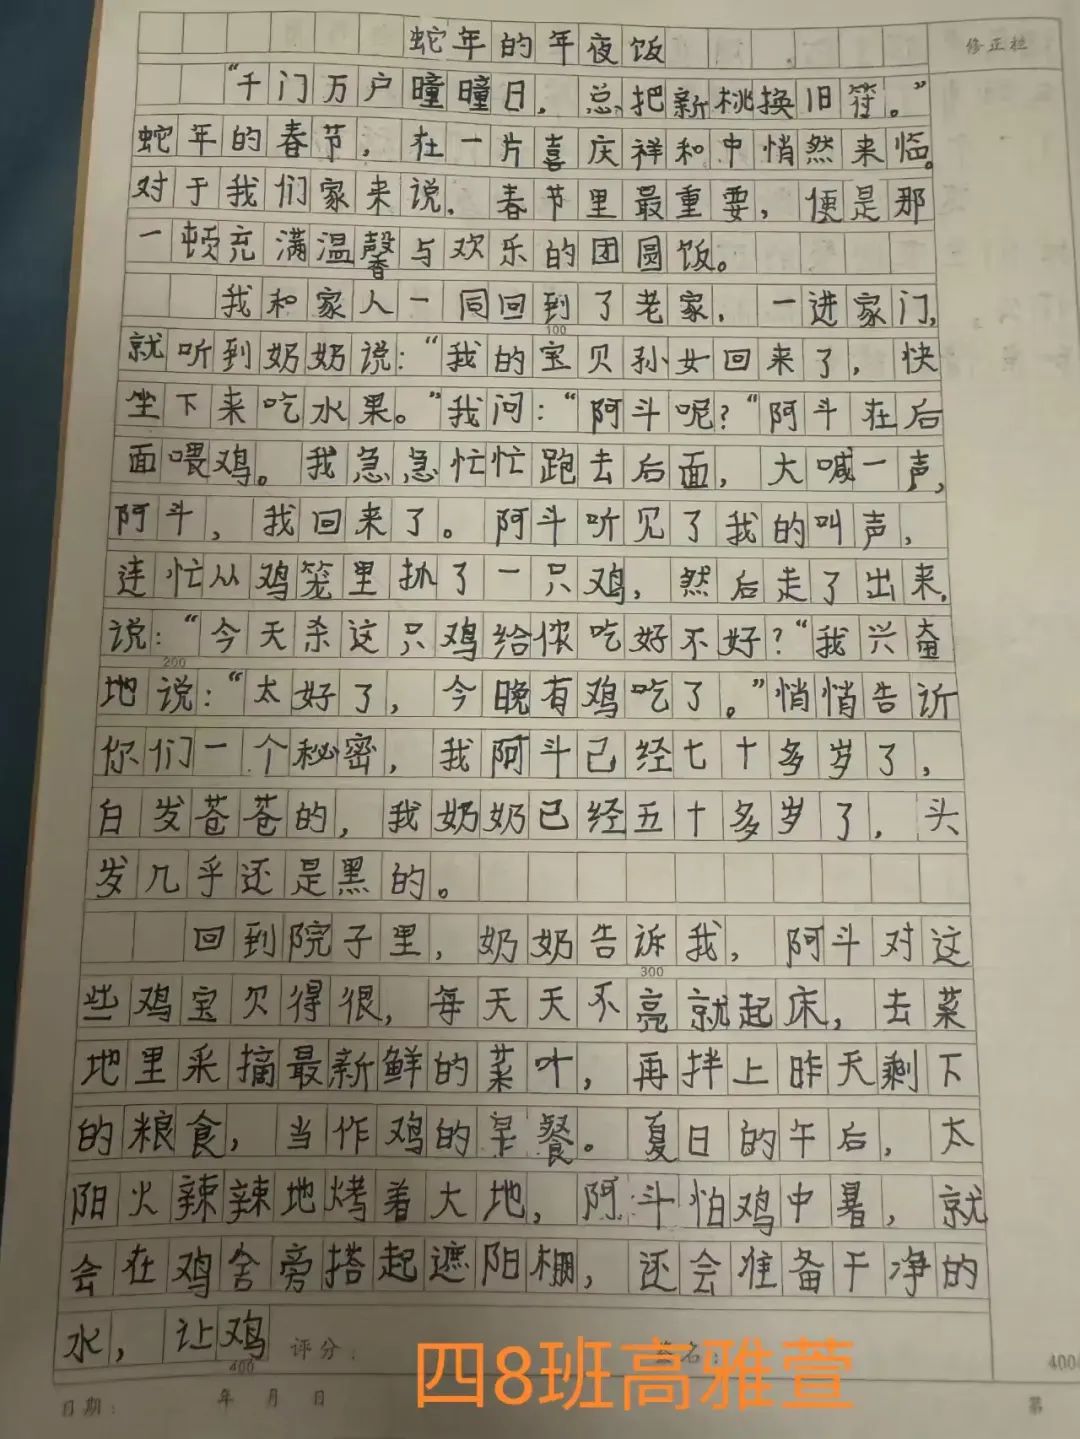 蛇年的年夜饭
修正栏
“千门万户曈曈日，总把新桃换旧符。”
蛇年的春节，在一片喜庆祥和中悄然来临。
对于我们家来说，春节里最重要，便是那
一顿充满温馨与欢乐的团圆饭。
我和家人一同回到了老家，一进家门，
100
就听到奶奶说：“我的宝贝孙女回来了，快
坐下来吃水果。”我问：“阿斗呢？”阿斗在后
面喂鸡。我急急忙忙跑去后面，大喊一声，
阿斗，我回来了。阿斗听见了我的叫声，
连忙从鸡笼里抓了一只鸡，然后走了出来，
说：“今天杀这只鸡给侬吃好不好？”我兴奋
200
地说：“太好了，今晚有鸡吃了。”悄悄告诉
你们一个秘密，我阿斗已经七十多岁了，
白发苍苍的，我奶奶已经五十多岁了，头
发几乎还是黑的。
回到院子里，奶奶告诉我，阿斗对这
300
些鸡宝贝得很，每天天不亮就起床，去菜
地里采摘最新鲜的菜叶，再拌上昨天剩下
的粮食，当作鸡的早餐。夏日的午后，太
阳火辣辣地烤着大地，阿斗怕鸡中暑，就
会在鸡舍旁搭起遮阳棚，还会准备干净的
水，让鸡
评分：
签名：
400
400
四8班高雅萱
日期：
年 月 日
第